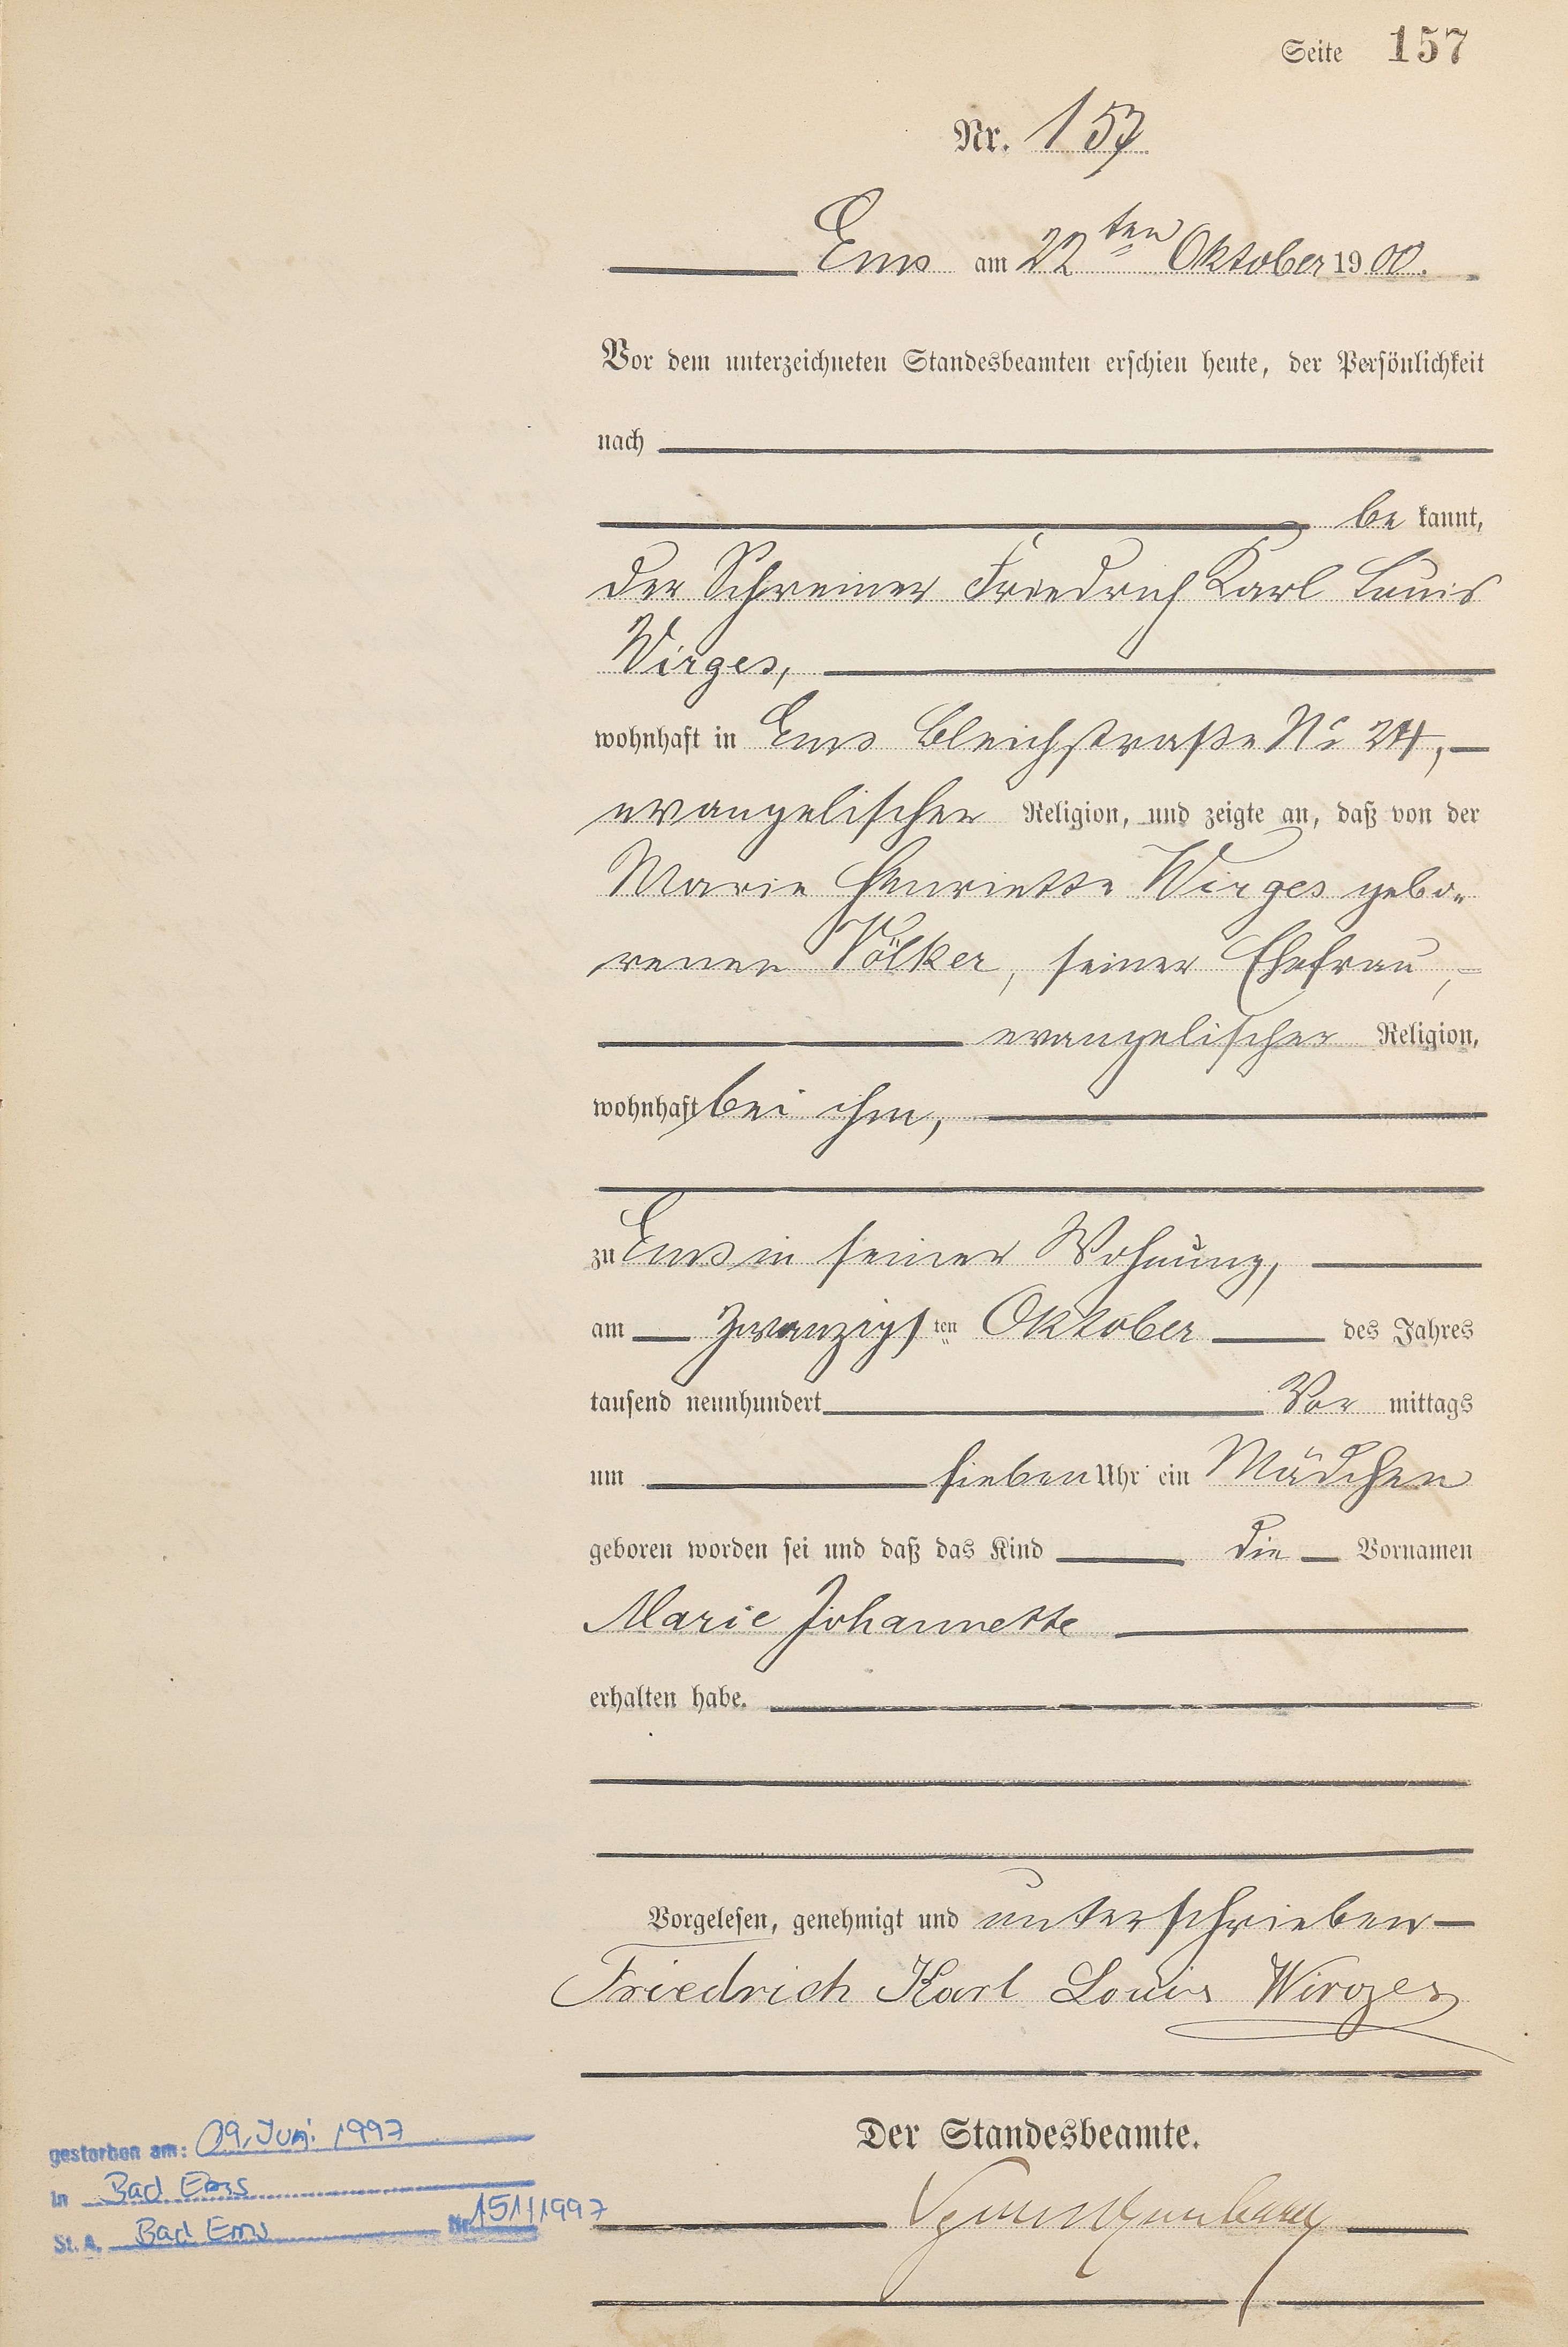 Seite 157
Nr. 157
Ems am 22ten Oktober 1900.
Vor dem unterzeichneten Standesbeamten erschien heute, der Persönlichkeit
nach
be kannt,
der Schreiner Friedrich Karl Louis
Wirges,
wohnhaft in Ems Bleichstraße No 24,
evangelischer Religion, und zeigte an, daß von der
Marie Henriette Wirges gebo„
renen Völker, seiner Ehefrau,
evangelischer Religion,
wohnhaft bei ihm,
zu Ems in seiner Wohnung,
am zwanzigsten Oktober des Jahres
tausend neunhundert Vor mittags
um sieben Uhr ein Mädchen
geboren worden sei und daß das Kind die Vornamen
Marie Johannette
erhalten habe.
Vorgelesen, genehmigt und unterschrieben
Friedrich Karl Louis Wirges
Der Standesbeamte.
gestorben am: 09. Juni 1997
in Bad Ems
St. A. Bad Ems Nr. 151/1997